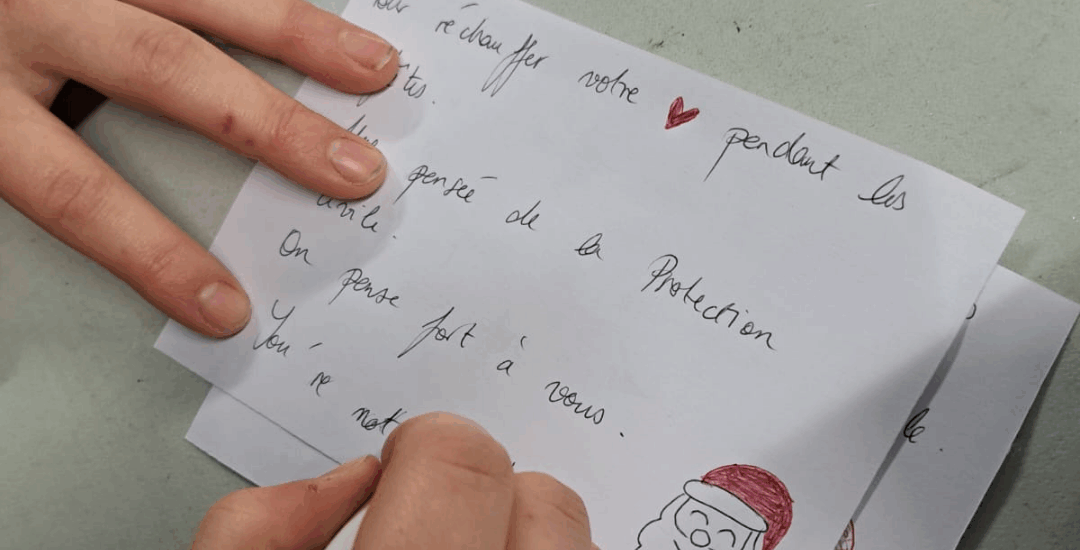 réchauffer votre ❤ pendant les
penseé de la Protection
civile.
On pense fort à vous.
You're not
le.